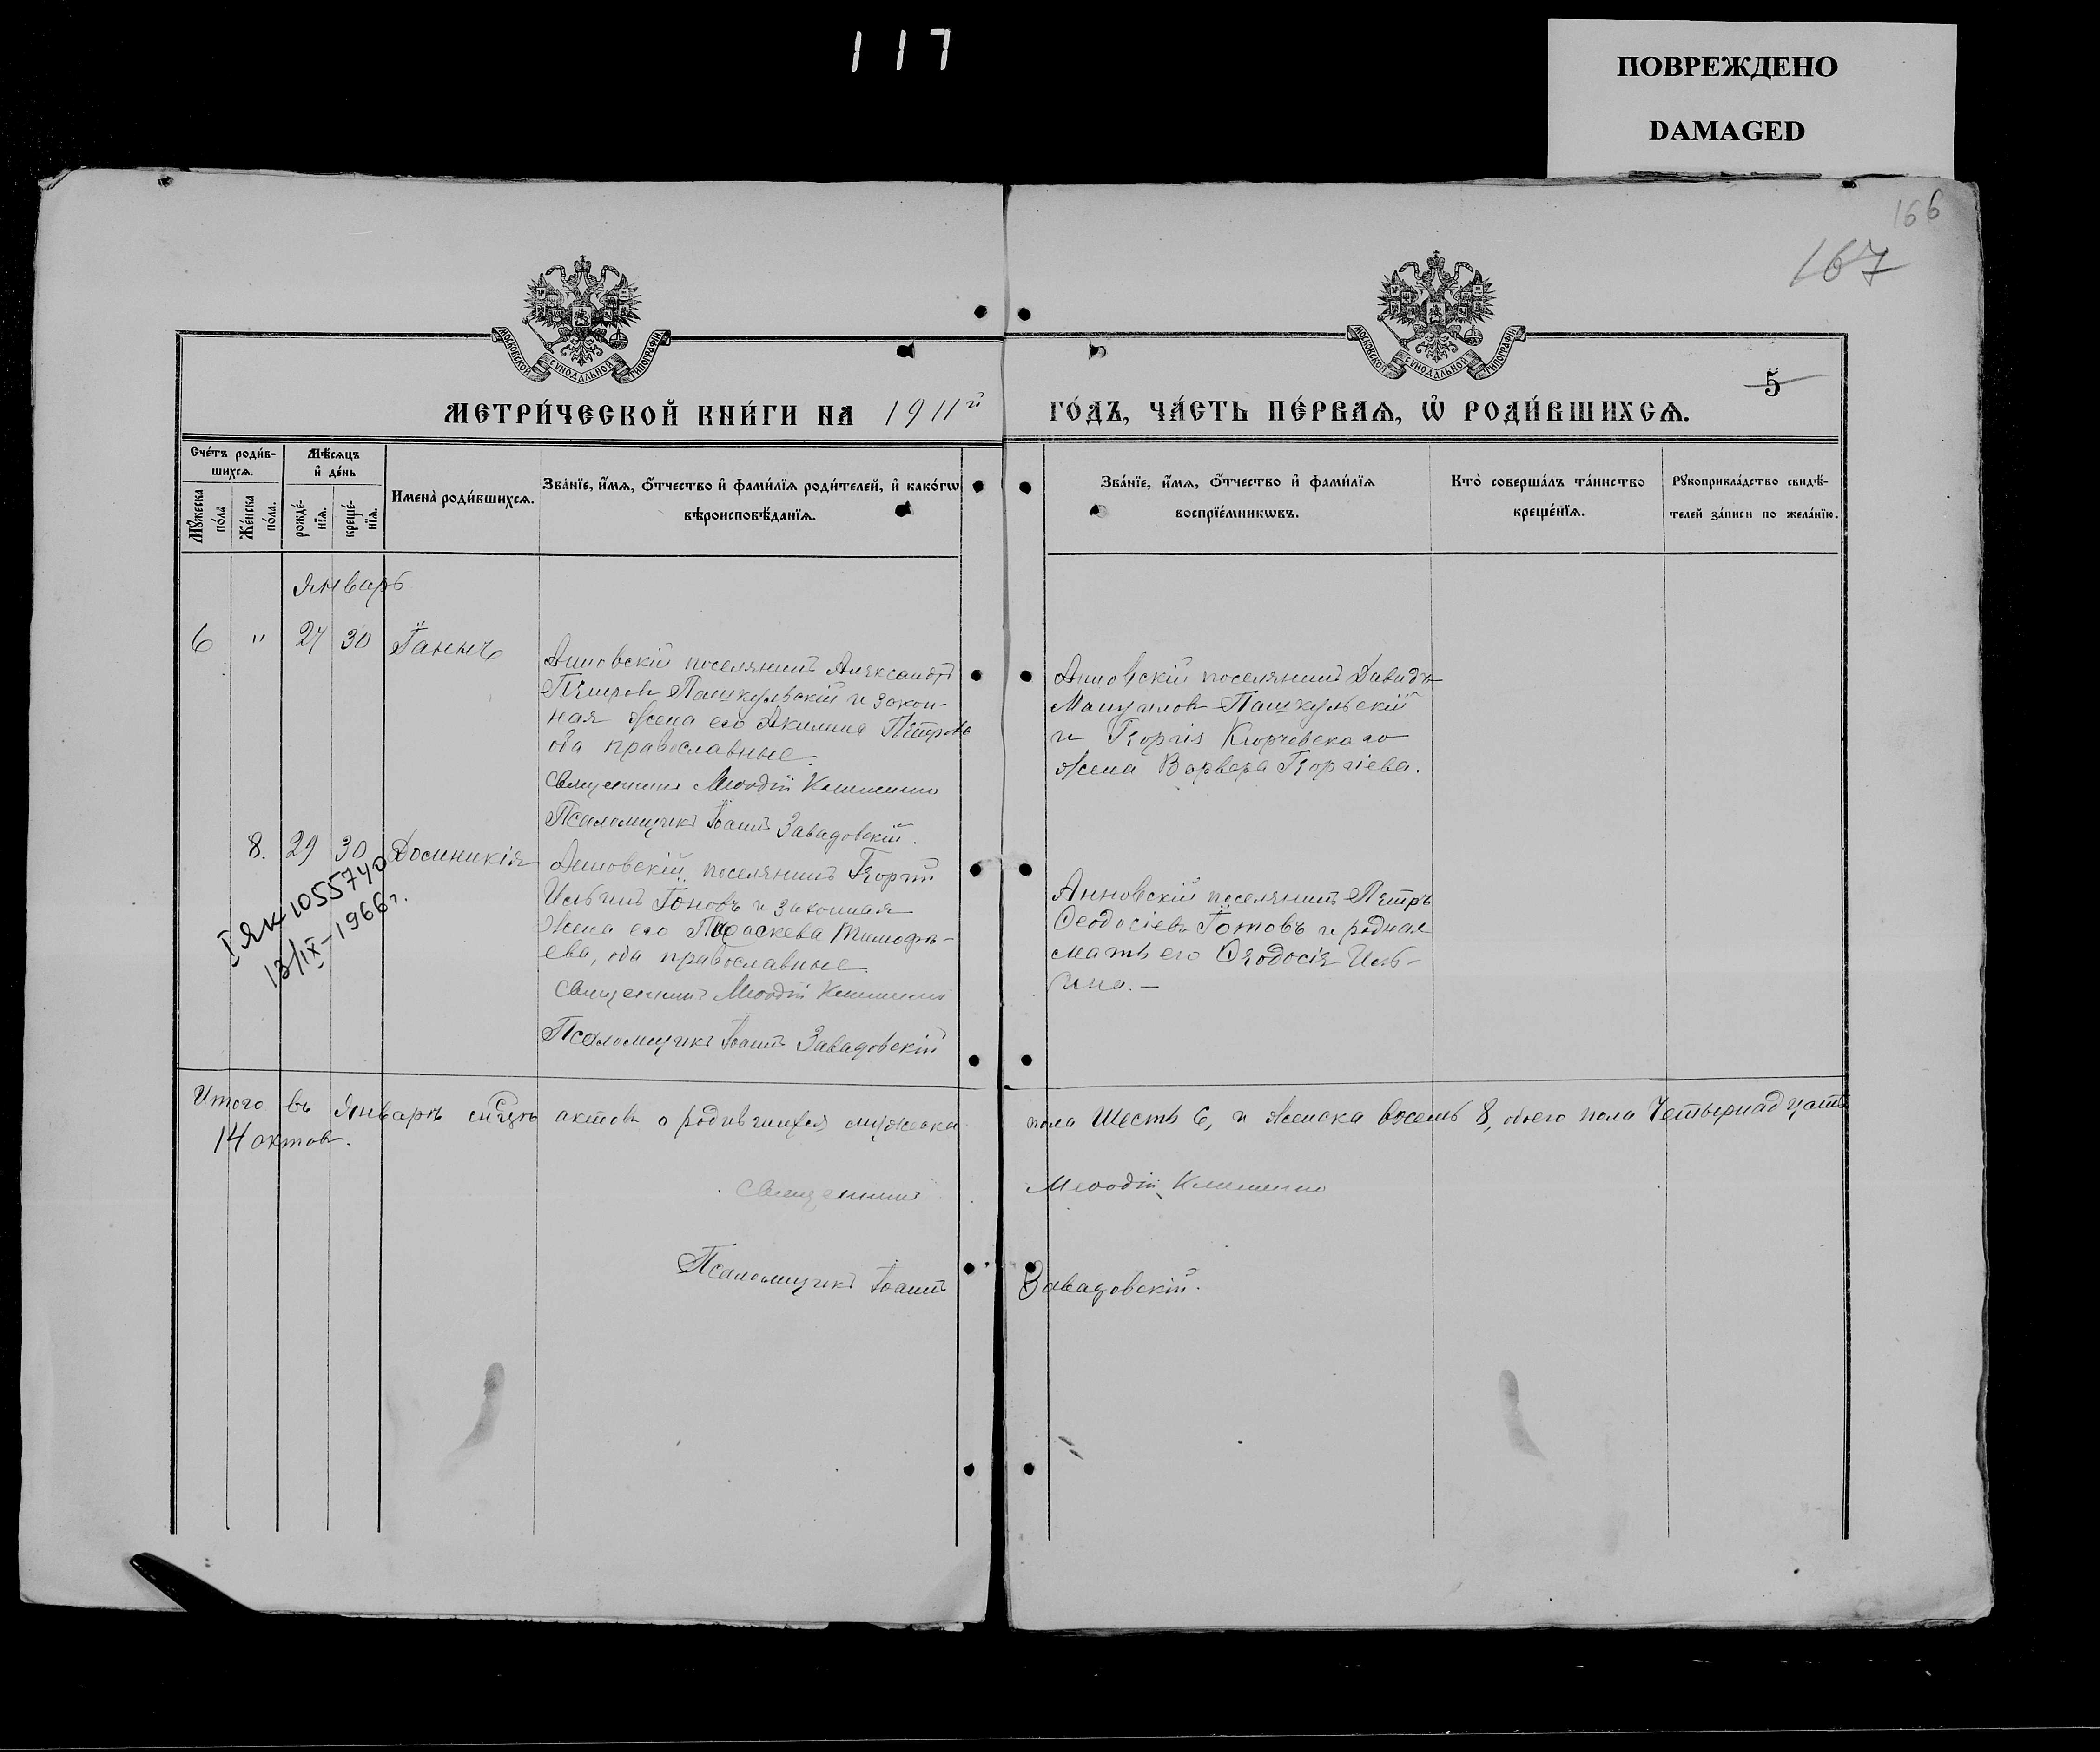 117
ПОВРЕЖДЕНО
DAMAGED
166
167
МОСКОВСКОЙ СѴНОДАЛЬНОЙ ТИПОГРАФІИ
МОСКОВСКОЙ СѴНОДАЛЬНОЙ ТИПОГРАФІИ
5
МЕТРИ́ЧЕСКОЙ КНИ́ГИ НА 1911й
ГО́ДЪ, ЧА́СТЬ ПЕ́РВАѦ, Ѡ҆ РОДИ́ВШИХСѦ.
Сче́тъ роди́в-
шихсѧ.
Мꙋ́жеска по́ла
Же́нска по́ла.
Мѣ́сѧцъ
и҆ де́нь
рожде́-
нїѧ.
креще́-
нїѧ.
Имена̀ роди́вшихсѧ.
Зва́нїе, и҆́мѧ, ѻ҆́тчество и҆ фами́лїѧ роди́телей, и҆ како́гѡ
вѣроисповѣ́данїѧ.
Зва́нїе, и҆́мѧ, ѻ҆́тчество и҆ фами́лїѧ
воспрїе́мникѡвъ.
Кто̀ соверша́лъ та́инство
креще́нїѧ.
Рꙋкоприкла́дство свидѣ́-
телей за́писи по жела́нїю.
Январь
6 " 27 30 Іаннъ
Анновскій поселянинъ Александръ
Петровъ Пашкульскій и закон-
ная жена его Акилина Петрова
оба православные.
Священникъ Меѳодій
Псаломщикъ Іоаннъ Завадовскій.
Анновскій поселянинъ Давидъ
Мануиловъ Пашкульскій
и Георгія Кюрчевскаго
жена Варвара Георгіева.
8. 29 30 Домникія
Анновскій поселянинъ Георгій
Ильинъ Гоновъ и законная
жена его Параскева Тимофѣ-
ева, оба православные
Священникъ Меѳодій
Псаломщикъ Іоаннъ Завадовскій
Анновскій поселянинъ Петръ
Ѳеодосіевъ и родная
мать его Ѳеодосія Иль-
ина. —
I ЯК 1055740
13/IX-1966 г.
Итого въ Январѣ мѣсяцѣ актовъ о родившихся мужеска пола Шесть 6, и женска восемь 8, обоего пола Четырнадцать
14 актовъ.
Священникъ Меѳодій
Псаломщикъ Іоаннъ Завадовскій.